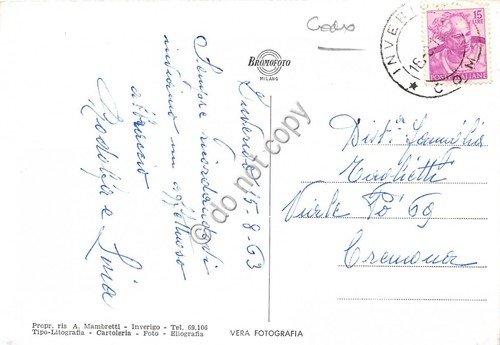 Cedro
BROMOFOTO
MILANO
Inverigo 15-8-63
Sempre ricordandovi
inviamo un affettuoso
abbraccio
Rodolfo e Lina
INVERI
16.
COMO
15
LIRE
POSTE ITALIANE
Dist. Famiglia
Taglietti
Viale Po 69
Cremona
© do not copy
Propr. ris A. Mambretti - Inverigo - Tel. 69.106
Tipo-Litografia - Cartoleria - Foto - Eliografia
VERA FOTOGRAFIA